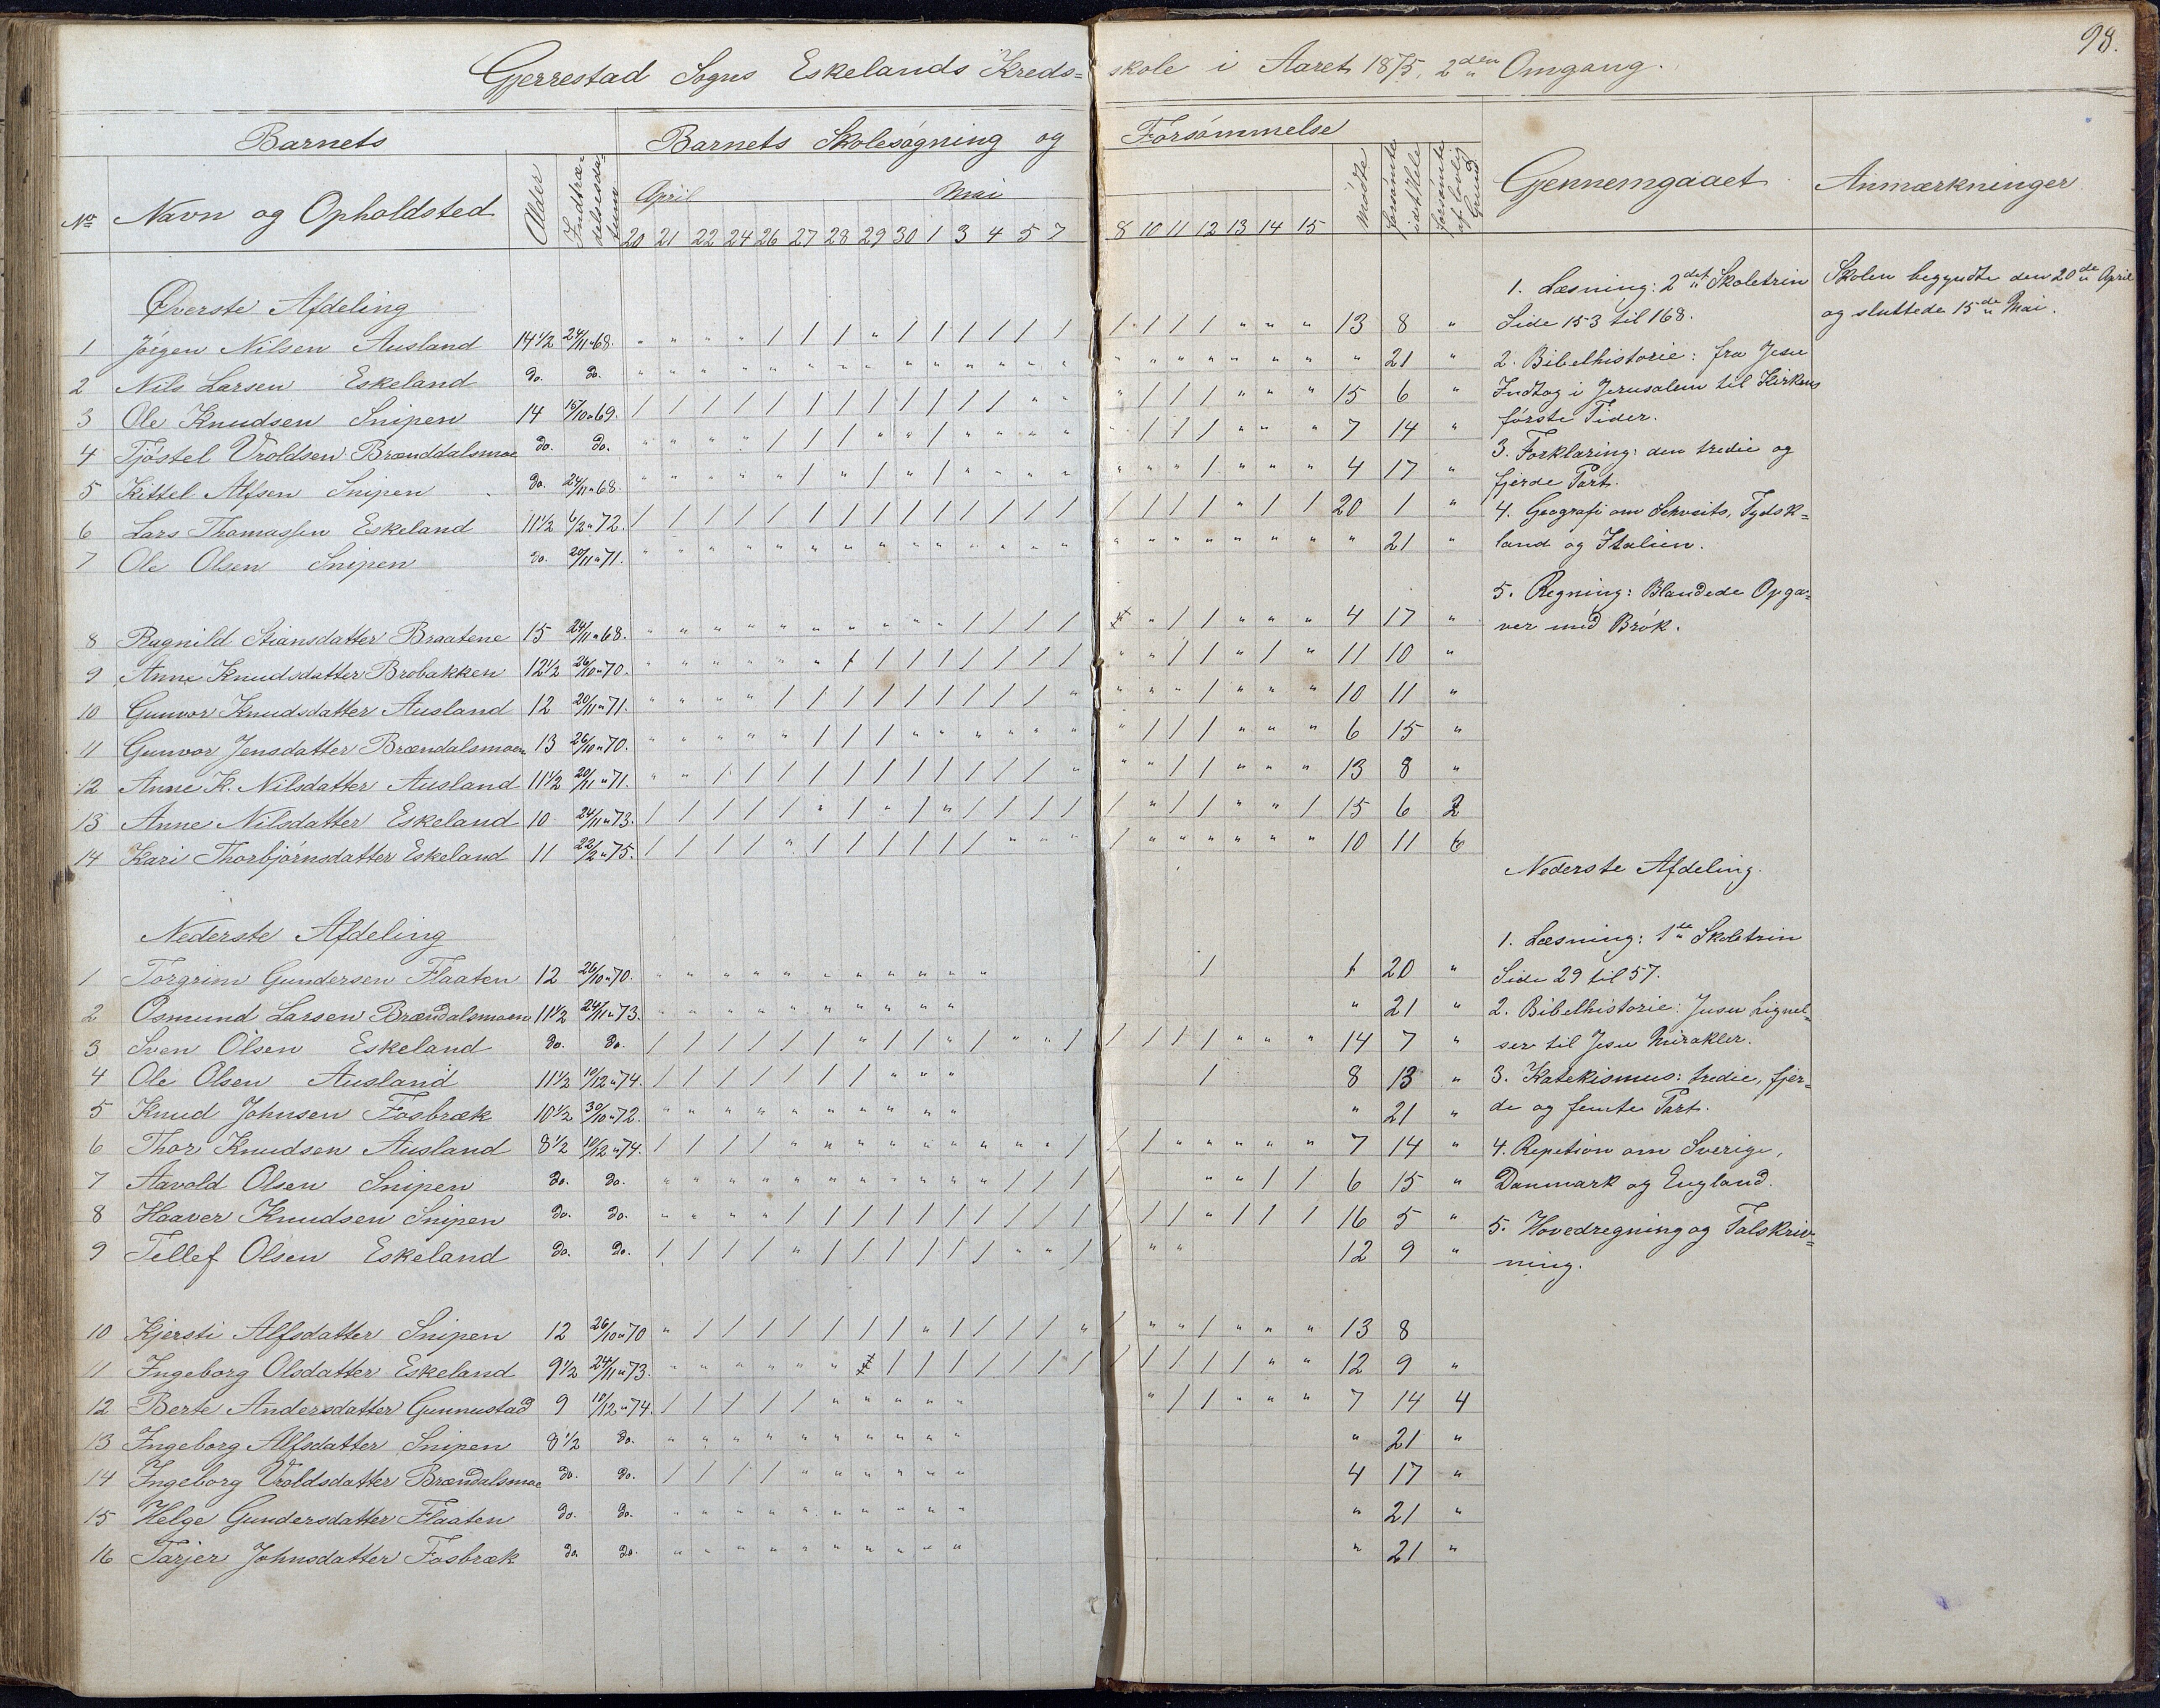 98.
Gjerrestad Sogns Eskelands Kreds= skole i Aaret 1875, 2den Omgang.
Barnets Barnets Skolesøgning og Forsømmelse
No Navn og Opholdsted Alder Indtrædelsesdatum April Mai Mødte forsømte idethele forsømte af lovlig Grund Gjennemgaaet Anmærkninger
20 21 22 24 26 27 28 29 30 1 3 4 5 7 8 10 11 12 13 14 15
Øverste Afdeling
1 Jørgen Nilsen Ausland 14 1/2 24/11 "68. " " " " / / / " / / / / / / / / / / " " " 13 8 "
2 Nils Larsen Eskeland do. do. " " " " " " " " " " " " " " " " " " " " " " 21 "
3 Ole Knudsen Snipen 14 15/10 "69. / / / / / / / / / / / / " " " / / / " " " 15 6 "
4 Tjøstel Vroldsen Brænddalsmoe do. do. " " " " / / / " " / " " " " " / / / " " " 7 14 "
5 Kittel Alfsen Snipen do. 24/11 "68. " " " " " / " / " / " " " " " " " / " " " 4 17 "
6 Lars Thomassen Eskeland 11 1/2 6/2 "72. / / / / / / / / / / / / / / / / / / " / / 20 1 "
7 Ole Olsen Snipen do. 20/11 "71. " " " " " " " " " " " " " " " " " " " " " " 21 "
8 Ragnild Stiansdatter Braatene 15 24/11 "68. " " " " " " " " " " / / / / " " / / " " " 4 17 "
9 Anne Knudsdatter Brobakken 12 1/2 26/10 "70. " " " " " " / / / / / / / / " " / / " / " 11 10 "
10 Gunvor Knudsdatter Ausland 12 20/11 "71. " " " " / / / / / / / / / " " " " / " " " 10 11 "
11 Gunvor Jensdatter Brændalsmoen 13 26/10 "70. " " " " " / / / " " " " " " " / / / " " " 6 15 "
12 Anne K. Nilsdatter Ausland 11 1/2 20/11 "71. " " / / / / / / / / / / / " " " / / " " " 13 8 "
13 Anne Nilsdatter Eskeland 10 24/11 "73. / / / / / " / " / " / / / / / " / / " " / 15 6 2
14 Kari Thorbjørnsdatter Eskeland 11 22/2 "75. / / / / " / / / / / / " " " / " " " " " " 10 11 6
Nederste Afdeling
1 Torgrim Gundersen Flaaten 12 26/10 "70. " " " " " " " " " " " / 1 20 "
2 Osmund Larsen Brændalsmoen 11 1/2 24/11 "73. " " " " " " " " " " " 21 "
3 Sven Olsen Eskeland do. do. / / / / / / " / / " / " " / / / / / " " " 14 7 "
4 Ole Olsen Ausland 11 1/2 10/12 "74. / / / / / / / " " " / 8 13 "
5 Knud Johnsen Fosbræk 10 1/2 30/10 "72. " " " " " " " " " " " 21 "
6 Thor Knudsen Ausland 8 1/2 10/12 "74. / / / / " " " " " " " " " / / / " " " " " 7 14 "
7 Aavold Olsen Snipen do. do. " " " " " " " " " " " / / / / " " / / 6 15 "
8 Haaver Knudsen Snipen do. do. " " " " / / / / / / / / / / / / / " / / / 16 5 "
9 Tellef Olsen Eskeland do. do. / / / / " / / / / / / " " / / " " 12 9 "
10 Kjersti Alfsdatter Snipen 12 26/10 "70 " / / / / / / / " / / / / " / " " / " " " 13 8
11 Ingeborg Olsdatter Eskeland 9 1/2 24/11 "73. " " " " " " / / / / / / / / / / / / " " 12 9 "
12 Berte Andersdatter Gunnustad 9 10/12 "74. / / / / / " " " " " " / / " " " 7 14 4
13 Ingeborg Alfsdatter Snipen 8 1/2 do. " " " " " " " " " " " 21 "
14 Ingeborg Vroldsdatter Brændalsmoe do. do. / / / / " " " " " " 4 17 "
15 Helge Gundersdatter Flaaten do. do. " " " " " " " " " " " 21 "
16 Tarjer Johnsdatter Fosbræk do. do. " " " " " " " " " " " 21 "
1. Læsning: 2det Skoletrin
Side 153 til 168.
2. Bibelhistorie: fra Jesu
Indtog i Jerusalem til Kirkens
første Tider.
3. Forklaring: den tredie og
fjerde Part.
4. Geografi om Schveits, Tydsk=
land og Italien.
5. Regning: Blandede Opga=
ver med Brøk.
Nederste Afdeling.
1. Læsning: 1ste Skoletrin
Side 29 til 57.
2. Bibelhistorie: Jesu Lignel=
ser til Jesu Mirakler.
3. Katekismus: tredie, fjer=
de og femte Part.
4. Repetsion om Sverige,
Danmark og England.
5. Hovedregning og Talskriv=
ning.
Skolen begyndte den 20de April
og sluttede 15de Mai.